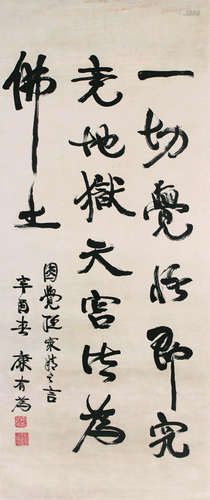 一切覺悟即究
竟地獄天宮皆為
佛土
圓覺經最精之言
辛酉春 康有為